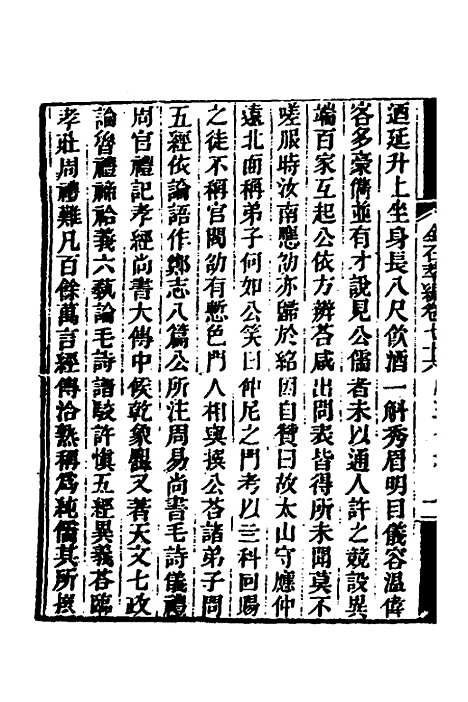 金石萃編卷七十六
迺延升上坐身長八尺飲酒一斛秀眉明目儀容溫偉
容多豪儁並有才說見公儒者未以通人許之競設異
端百家互起公依方辨荅咸出問表皆得所未聞莫不
嗟服時汝南應劭亦歸於紹因自贊曰故太山守應仲
遠北面稱弟子何如公笑曰仲尼之門考以三科回賜
之徒不稱官閥劭有慙色門人相與撰公荅諸弟子問
五經依論語作鄭志八篇公所注周易尚書毛詩儀禮
周官禮記孝經尚書大傳中候乾象曆又著天文七政
論魯禮禘祫義六蓺論毛詩譜駮許慎五經異義荅臨
孝莊周禮難凡百餘萬言經傳洽熟稱爲純儒其所撰